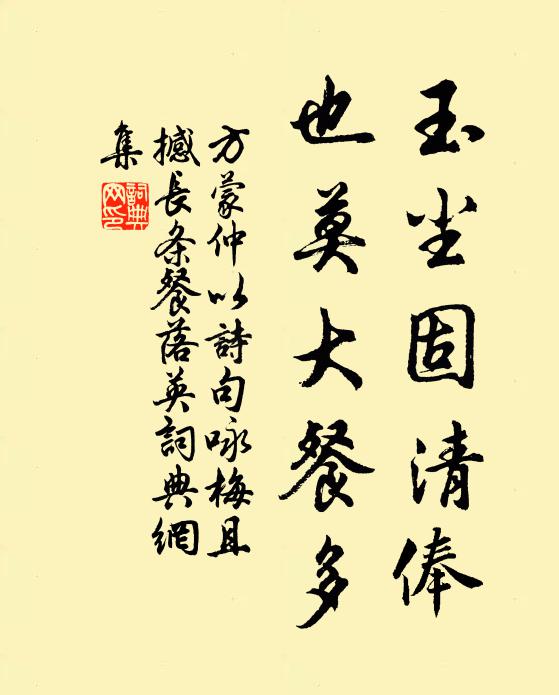 玉尘固清俸
也莫大餐多
方蒙仲以詩句咏梅且
撼長条餐落英詞典網
集
詞典
网印